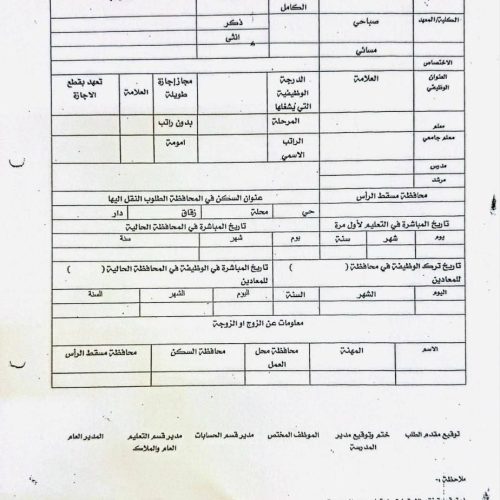 الكامل
الكلية/المعهد صباحي ذكر
انثى
مسائي
الاختصاص
العنوان الوظيفي العلامة الدرجة الوظيفية التي يشغلها مجاز إجازة طويلة العلامة تعهد بقطع الاجازة
معلم المرحلة بدون راتب
معلم جامعي الراتب الاسمي امومة
مدرس
مرشد
محافظة مسقط الرأس عنوان السكن في المحافظة الطلوب النقل اليها
حي محلة زقاق دار
تاريخ المباشرة في التعليم لأول مرة تاريخ المباشرة في المحافظة الحالية
يوم شهر سنة يوم شهر سنة
تاريخ ترك الوظيفة في محافظة ( ) للمعادين تاريخ المباشرة في الوظيفة في المحافظة الحالية ( ) للمعادين
اليوم الشهر السنة اليوم الشهر السنة
معلومات عن الزوج او الزوجة
الاسم المهنة محافظة محل العمل محافظة السكن محافظة مسقط الرأس
توقيع مقدم الطلب ختم وتوقيع مدير المدرسة الموظف المختص مدير قسم الحسابات مدير قسم التعليم العام والملاك المدير العام
ملاحظة :-